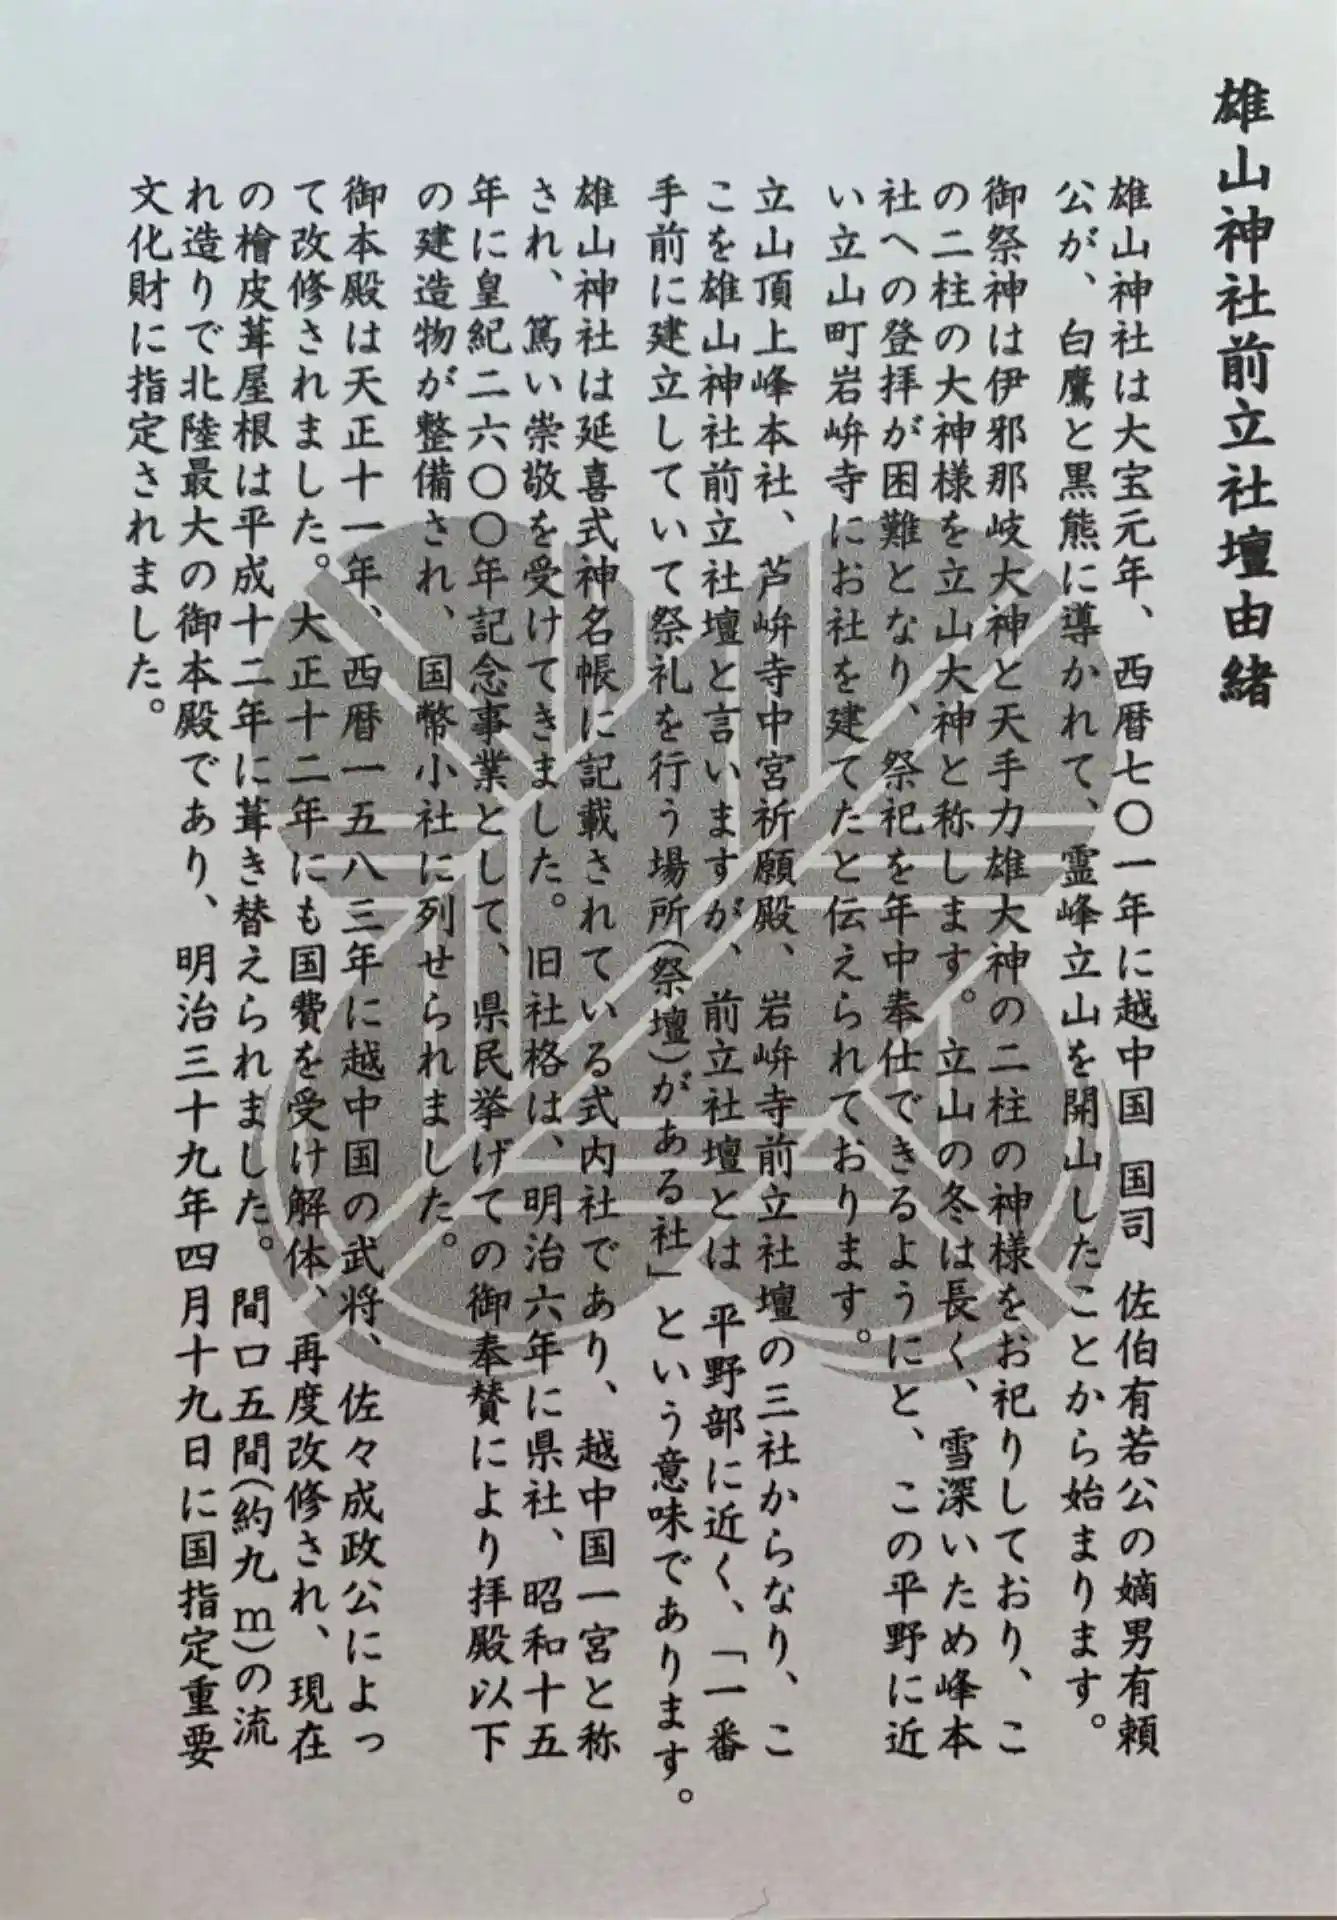 雄山神社前立社壇由緒
雄山神社は大宝元年、西暦七〇一年に越中国 国司 佐伯有若公の嫡男有頼
公が、白鷹と黒熊に導かれて、霊峰立山を開山したことから始まります。
御祭神は伊邪那岐大神と天手力雄大神の二柱の神様をお祀りしており、こ
の二柱の大神様を立山大神と称します。立山の冬は長く、雪深いため峰本
社への登拝が困難となり、祭祀を年中奉仕できるようにと、この平野に近
い立山町岩峅寺にお社を建てたと伝えられております。
立山頂上峰本社、芦峅寺中宮祈願殿、岩峅寺前立社壇の三社からなり、こ
こを雄山神社前立社壇と言いますが、前立社壇とは 平野部に近く、「一番
手前に建立していて祭礼を行う場所(祭壇)がある社」という意味であります。
雄山神社は延喜式神名帳に記載されている式内社であり、越中国一宮と称
され、篤い崇敬を受けてきました。旧社格は、明治六年に県社、昭和十五
年に皇紀二六〇〇年記念事業として、県民挙げての御奉賛により拝殿以下
の建造物が整備され、国幣小社に列せられました。
御本殿は天正十一年、西暦一五八三年に越中国の武将、佐々成政公によっ
て改修されました。大正十二年にも国費を受け解体、再度改修され、現在
の檜皮葺屋根は平成十二年に葺き替えられました。間口五間(約九m)の流
れ造りで北陸最大の御本殿であり、明治三十九年四月十九日に国指定重要
文化財に指定されました。